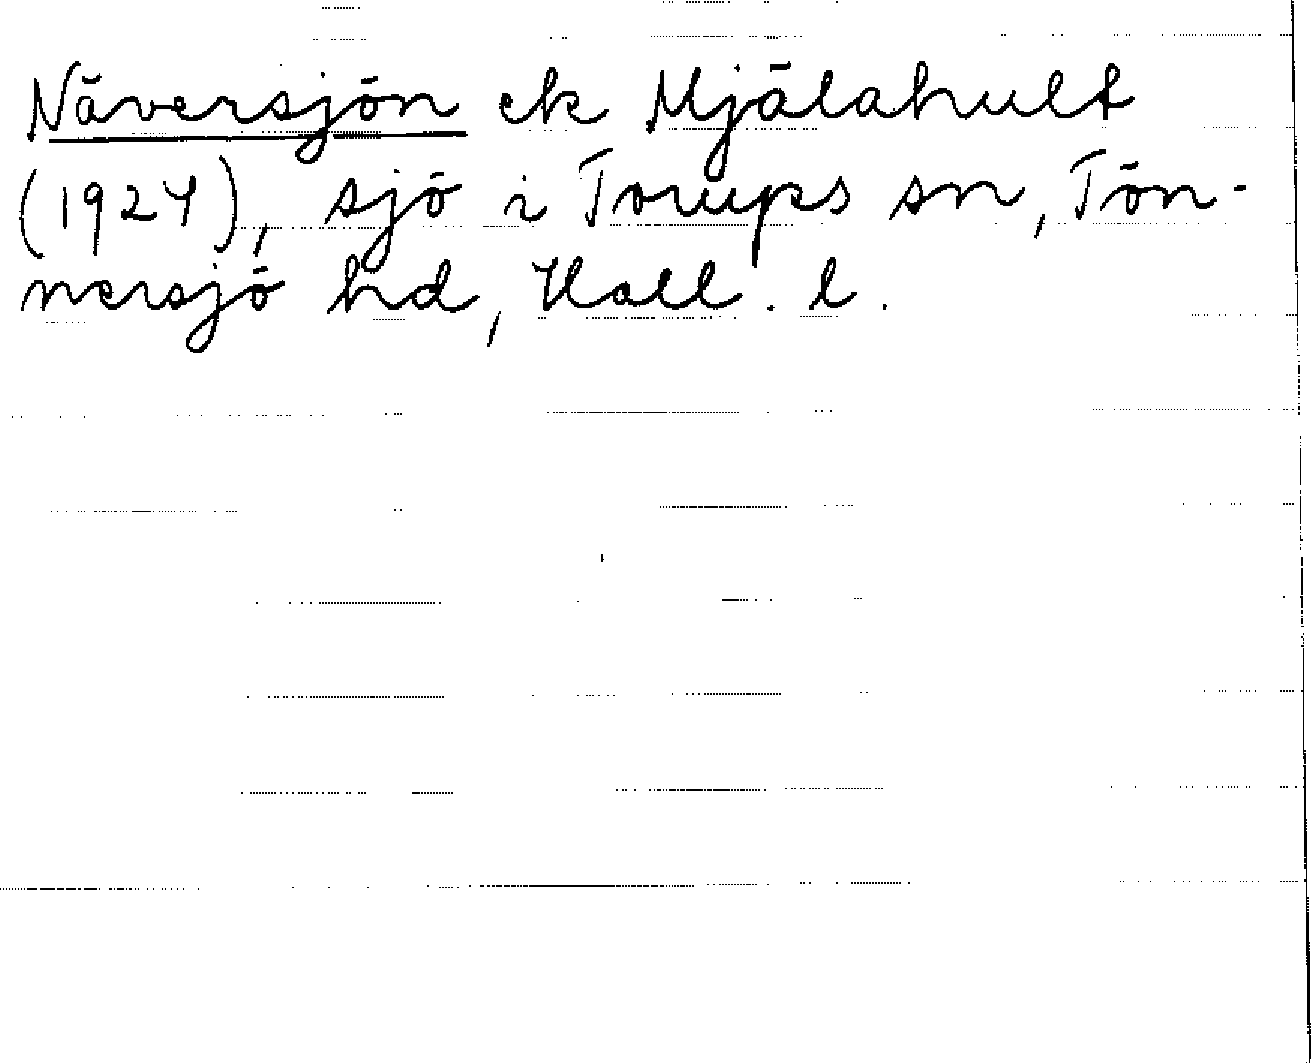 Näversjön ek Mjälahult
(1927), sjö i Torups sn, Tön-
nersjö hd, Hall. l.